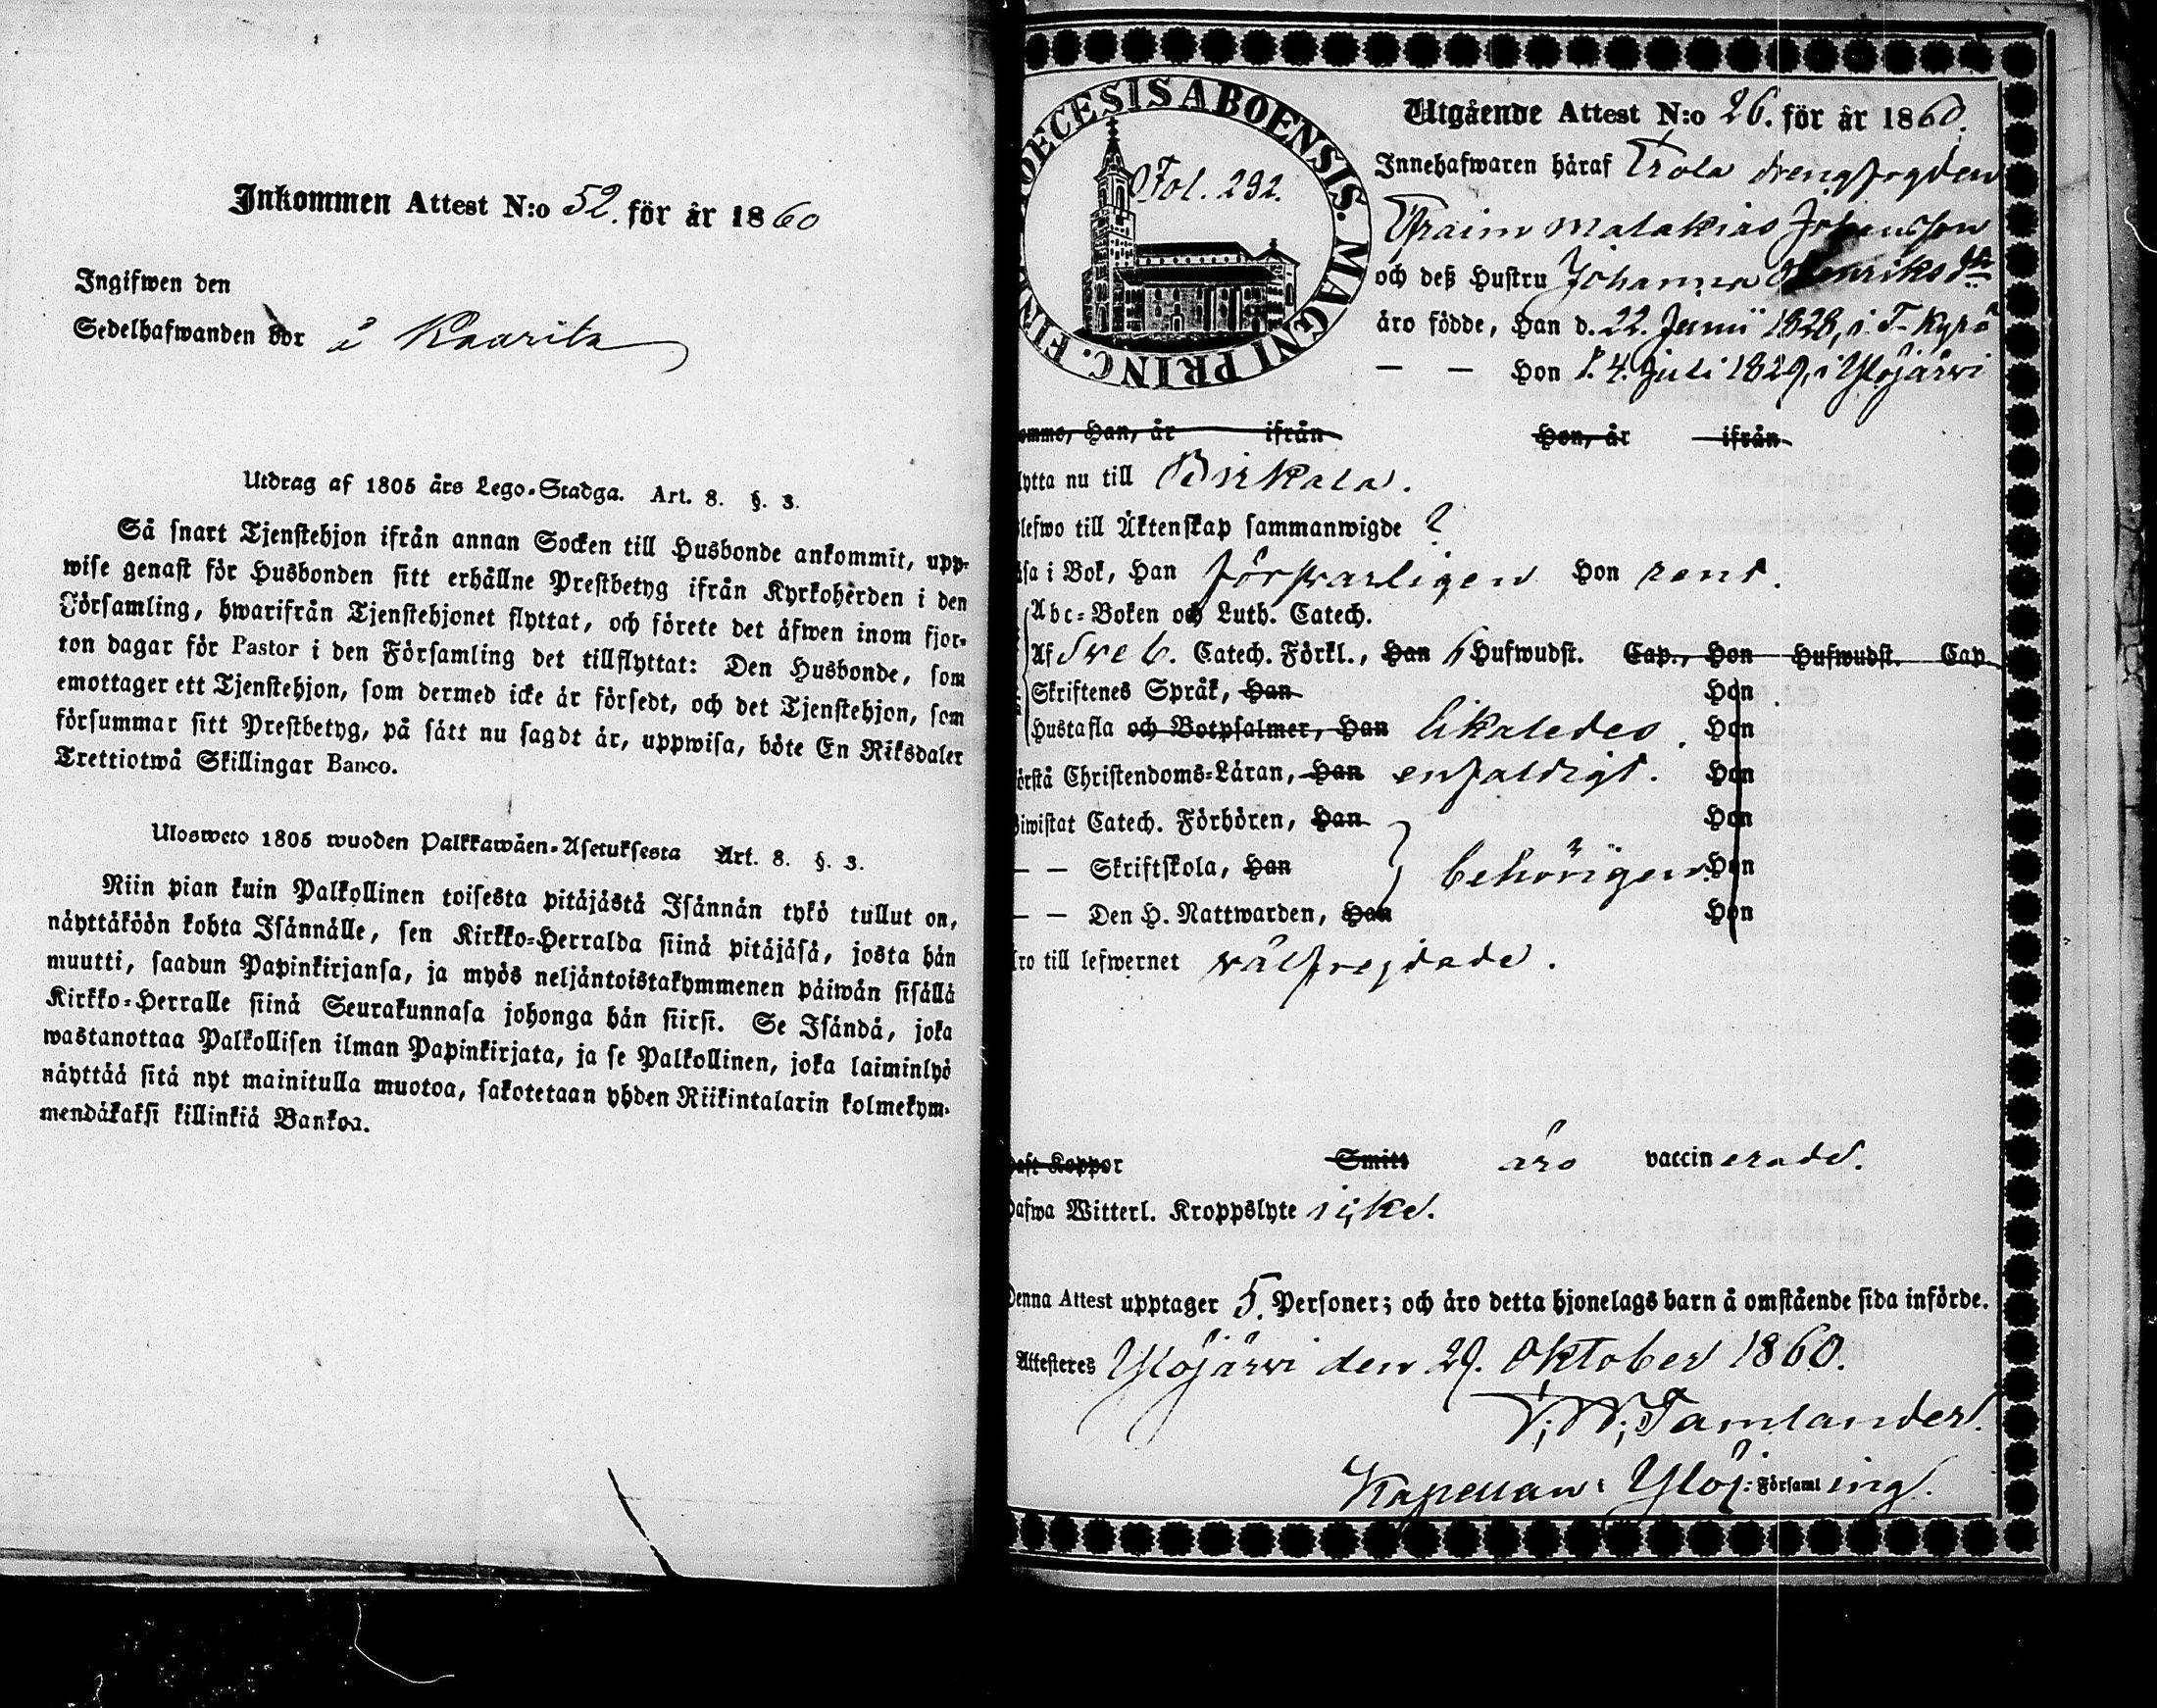 Inkommen Attest N:o 52. för år 1860
Ingifwen den
Sedelhafwanden bor å Kaarila
Utdrag af 1805 års Lego-Stadga. Art. 8. §. 3.
Så snart Tjenstehjon ifrån annan Socken till Husbonde ankommit, upp-
wise genast för Husbonden sitt erhållne Prestbetyg ifrån Kyrkoherden i den
Församling, hwarifrån Tjenstehjonet flyttat, och förete det äfwen inom fjor-
ton dagar för Pastor i den Församling det tillflyttat: Den Husbonde, som
emottager ett Tjenstehjon, som dermed icke är försedt, och det Tjenstehjon, som
försummar sitt Prestbetyg, på sätt nu sagdt är, uppwisa, böte En Riksdaler
Trettiotwå Skillingar Banco.
Ulosweto 1805 wuoden Palkkawäen-Asetuksesta Art. 8. §. 3.
Niin pian kuin Palkollinen toisesta pitäjästä Isännän tykö tullut on,
näyttäköön kohta Isännälle, sen Kirkko-Herralda siinä pitäjäsä, josta hän
muutti, saadun Papinkirjansa, ja myös neljäntoistakymmenen päiwän sisällä
Kirkko-Herralle siinä Seurakunnasa johonga hän siirsi. Se Isändä, joka
wastanottaa Palkollisen ilman Papinkirjata, ja se Palkollinen, joka laiminlyö
näyttää sitä nyt mainitulla muotoa, sakotetaan yhden Riikintalarin kolmekym-
mendäkaksi killinkiä Bankoa.
DIOECESIS ABOENSIS. MAGNI PRINC. FIN
Fol. 292.
Utgående Attest N:o 26. för år 1860.
Innehafwaren häraf Trola drengfogden
Efraim Malakias Johansson
och deß Hustru Johanna Henriksdr
äro födde, Han d. 22. Junii 1828, i T-Kyrö
— — Hon d. 4. Juli 1829, i Ylöjärvi
ommo, Han, år ifrån Hon, år ifrån
lytta nu till Birkala.
lefwo till Äktenskap sammanwigde ?
äsa i Bok, Han försvarligen Hon rent.
Abc-Boken och Luth. Catech.
Af Sveb. Catech. Förkl., Han Hufwudst. Cap., Hon Hufwudst. Cap.
Skriftenes Språk, Han Hon
Hustafla och Botpsalmer, Han likaledes. Hon
örstå Christendoms-Läran, Han enfaldigt. Hon
iwistat Catech. Förhören, Han Hon
— — Skriftskola, Han behörigen. Hon
— — Den H. Nattwarden, Han Hon
ro till lefwernet välfrejdade.
aft Koppor Smitt äro vaccinerade.
afwa Witterl. Kroppslyte icke.
Denna Attest upptager 5. Personer; och äro detta hjonelags barn å omstående sida införde.
Attesteras Ylöjärvi den 29. Oktober 1860.
Tamlander.
Kapellan i Ylöj: Församling.